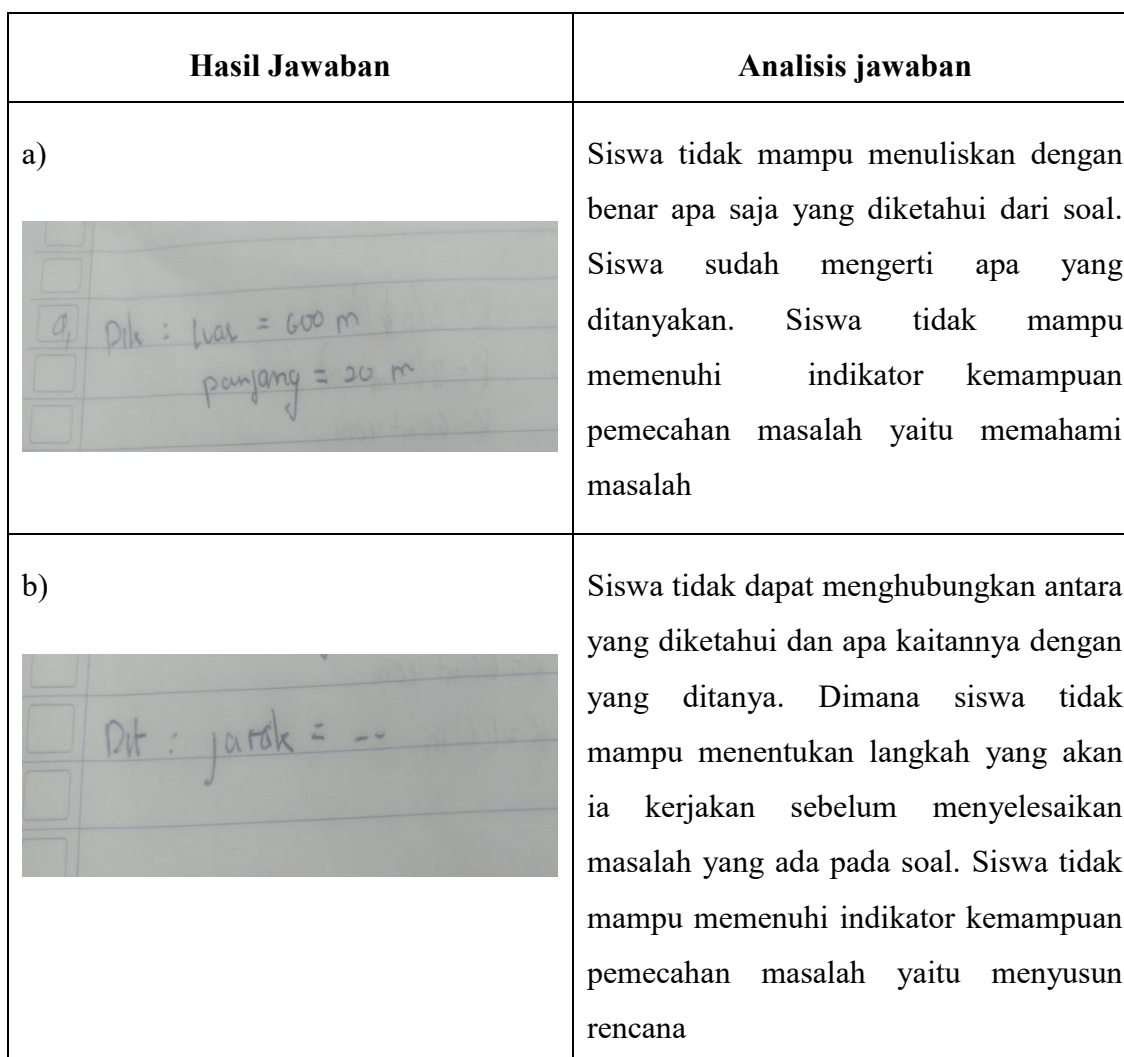 Hasil Jawaban
Analisis jawaban
a)
a, Dik : luas = 600 m
panjang = 20 m
Siswa tidak mampu menuliskan dengan
benar apa saja yang diketahui dari soal.
Siswa sudah mengerti apa yang
ditanyakan. Siswa tidak mampu
memenuhi indikator kemampuan
pemecahan masalah yaitu memahami
masalah
b)
Dit : jarak = --
Siswa tidak dapat menghubungkan antara
yang diketahui dan apa kaitannya dengan
yang ditanya. Dimana siswa tidak
mampu menentukan langkah yang akan
ia kerjakan sebelum menyelesaikan
masalah yang ada pada soal. Siswa tidak
mampu memenuhi indikator kemampuan
pemecahan masalah yaitu menyusun
rencana